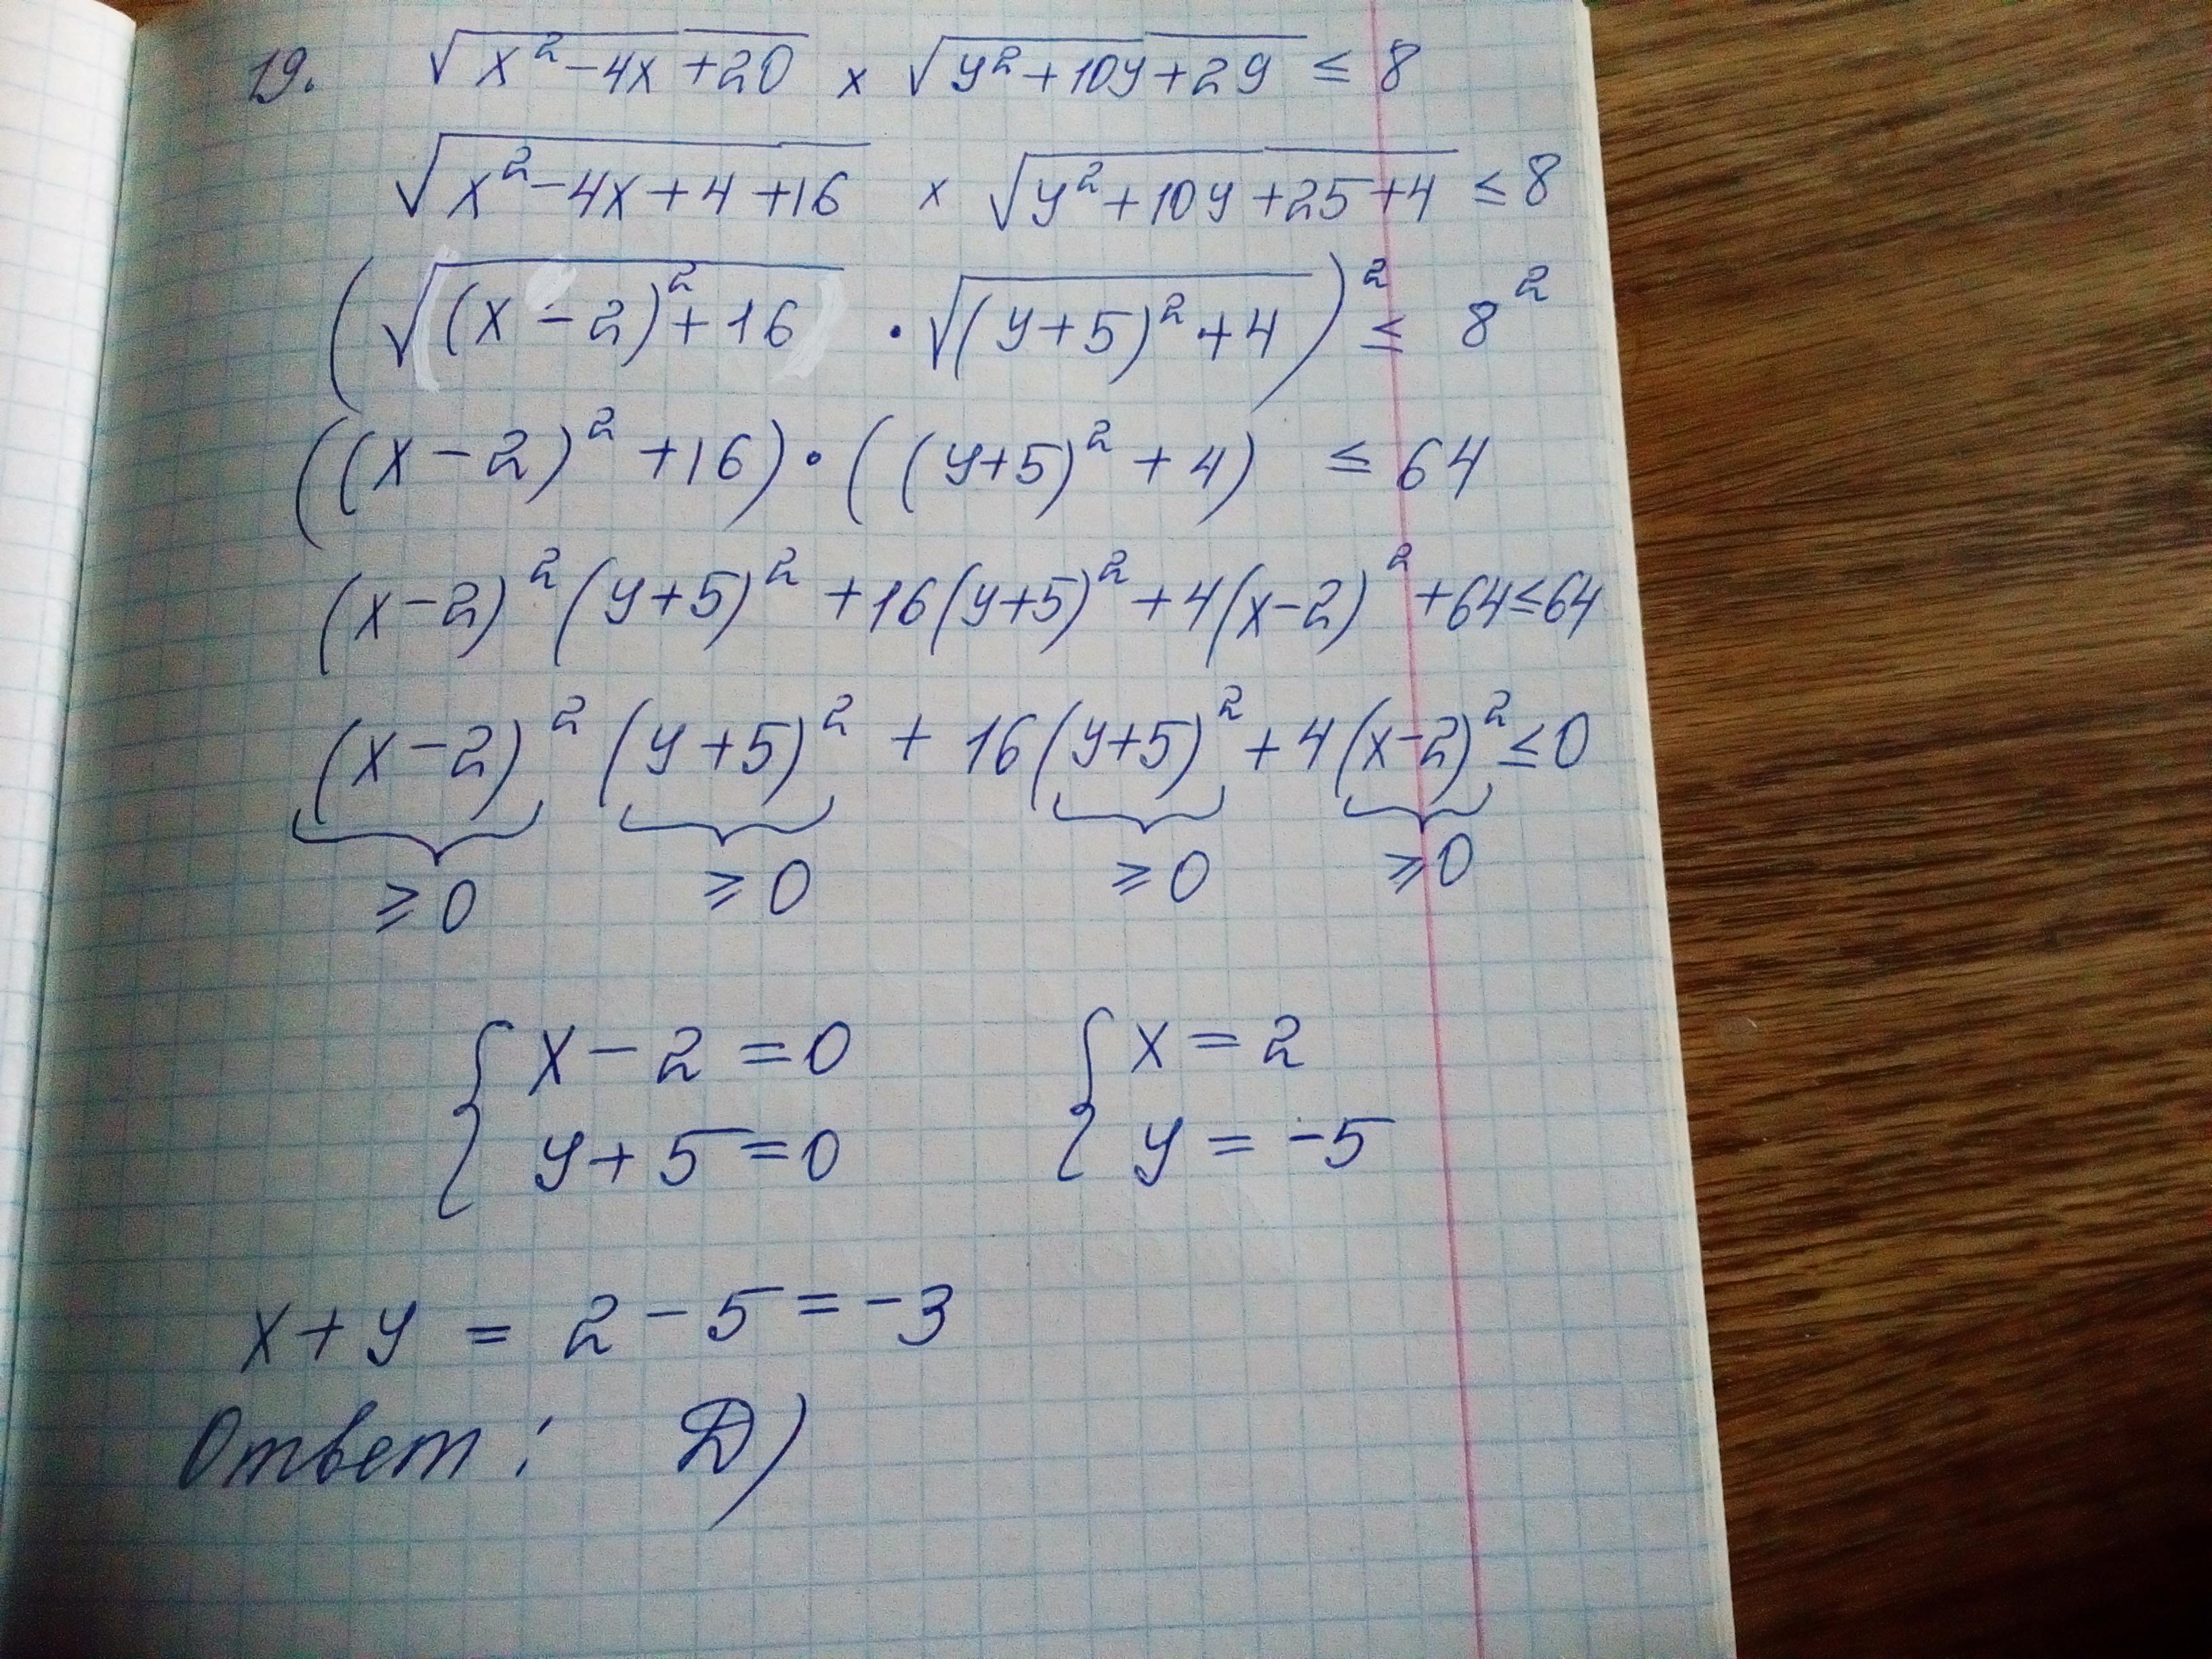 19. √(x² - 4x + 20) × √(y² + 10y + 29) ≤ 8
√(x² - 4x + 4 + 16) × √(y² + 10y + 25 + 4) ≤ 8
(√((x - 2)² + 16) · √((y + 5)² + 4))² ≤ 8²
((x - 2)² + 16) · ((y + 5)² + 4) ≤ 64
(x - 2)² (y + 5)² + 16(y + 5)² + 4(x - 2)² + 64 ≤ 64
(x - 2)² (y + 5)² + 16(y + 5)² + 4(x - 2)² ≤ 0
≥ 0 ≥ 0 ≥ 0 ≥ 0
{ x - 2 = 0 { x = 2
y + 5 = 0 y = -5
x + y = 2 - 5 = -3
Ответ: D)